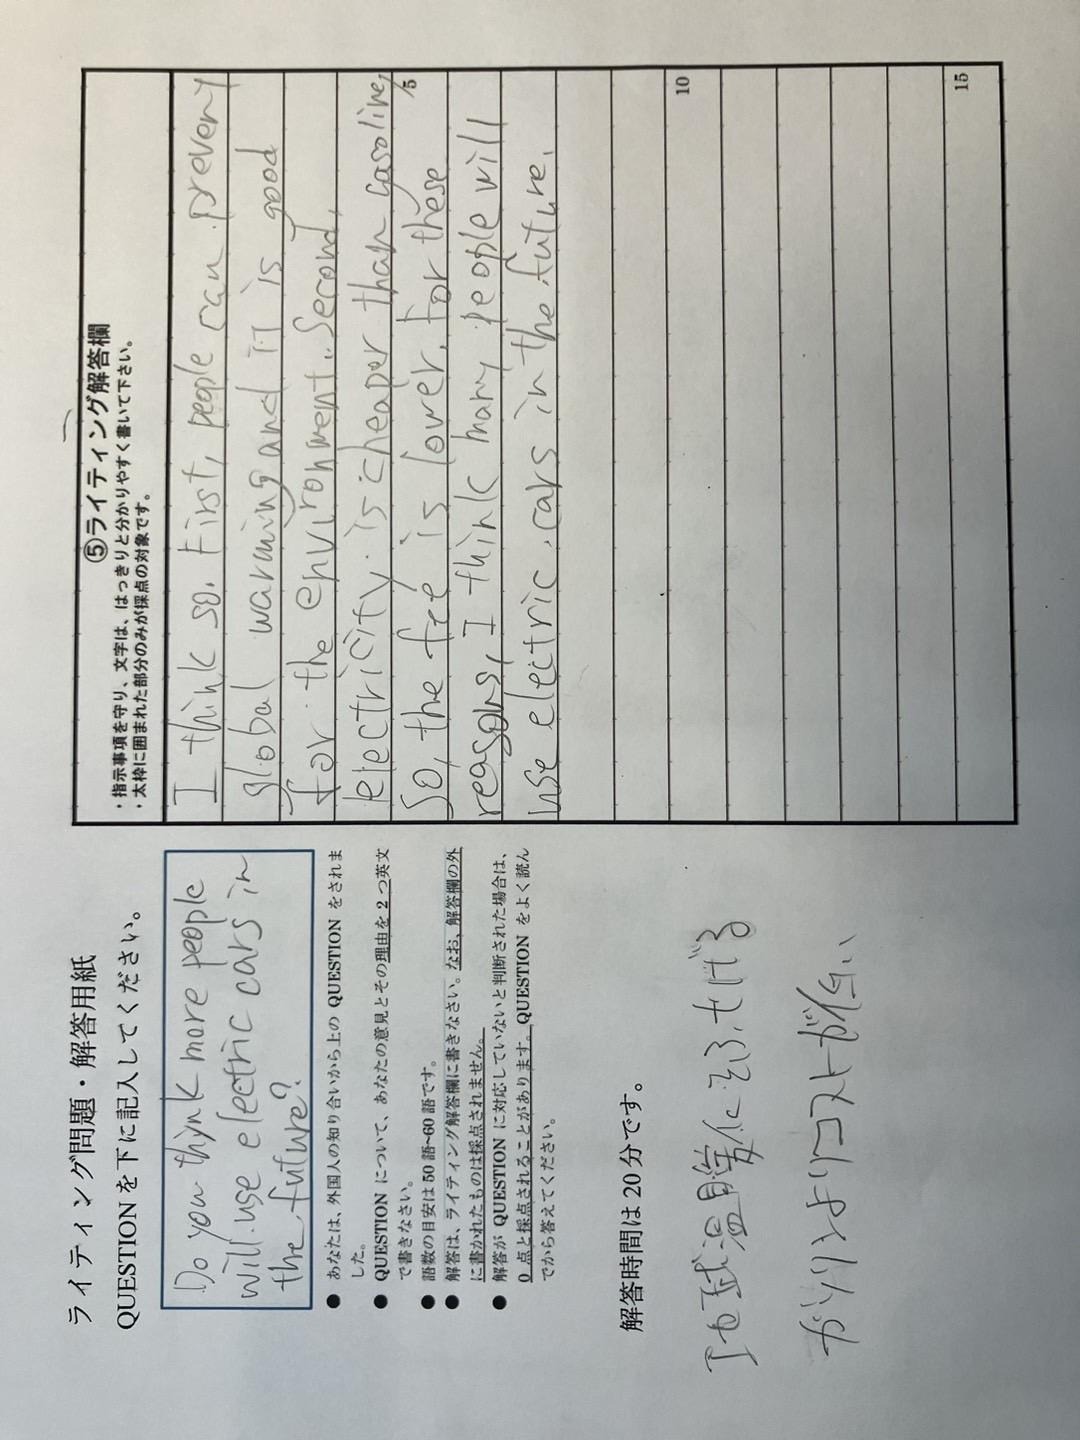 ライティング問題・解答用紙
QUESTIONを下に記入してください。
Do you think more people
will use electric cars in
the future?
● あなたは、外国人の知り合いから上の QUESTION をされました。
● QUESTION について、あなたの意見とその理由を2つ英文で書きなさい。
● 語数の目安は50語~60語です。
● 解答は、ライティング解答欄に書きなさい。なお、解答欄の外に書かれたものは採点されません。
● 解答が QUESTION に対応していないと判断された場合は、0点と採点されることがあります。QUESTION をよく読んでから答えてください。
解答時間は20分です。
地球温暖化
ガソリンよりコストが低い
⑤ライティング解答欄
・指示事項を守り、文字は、はっきりと分かりやすく書いて下さい。
・太枠に囲まれた部分のみが採点の対象です。
I think so. First, people can prevent
global warming and it is good
for the environment. Second,
electricity is cheaper than gasoline,
So, the fee is lower. For these
reasons, I think many people will
use electric cars in the future.
5
10
15